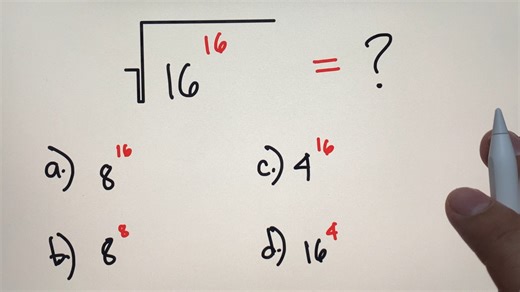 √16^16 = ?
a.) 8^16 c.) 4^16
b.) 8^8 d.) 16^4